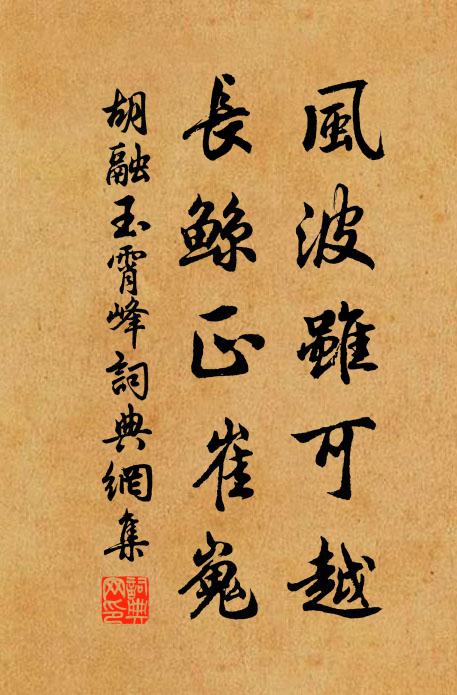 風波雖可越
長鯨正崔嵬
胡融玉霄峰詞典網集
詞典網印